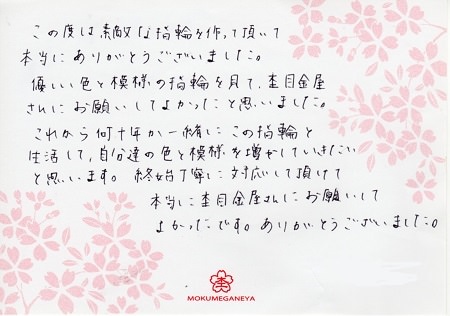 この度は素敵な指輪を作って頂いて
本当にありがとうございました。
優しい色と模様の指輪を見て、杢目金屋
さんにお願いしてよかったと思いました。
これから何十年か一緒にこの指輪と
生活して、自分達の色と模様を増やしていきたい
と思います。終始丁寧に対応して頂けて
本当に杢目金屋さんにお願いして
よかったです。ありがとうございました。
MOKUMEGANEYA